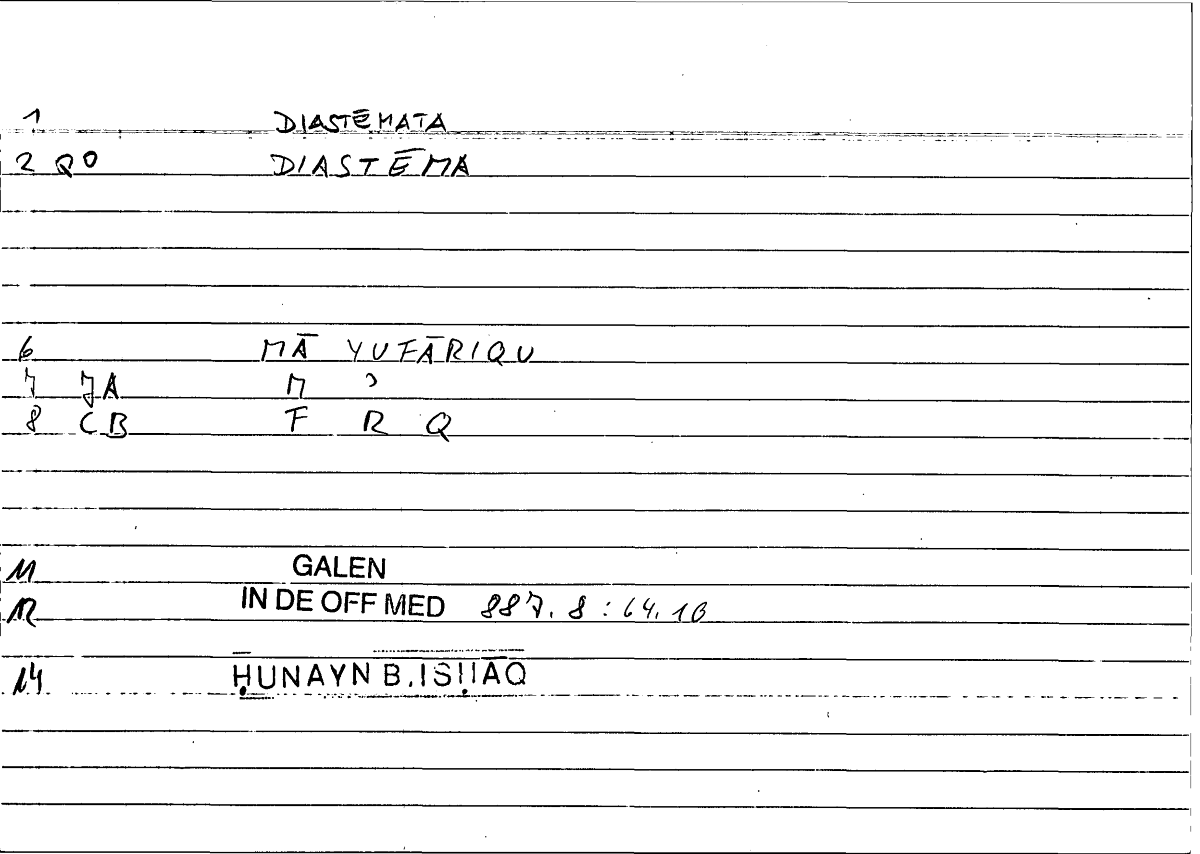 1 DIASTĒMATA
2 QO DIASTĒMA
6 MĀ YUFĀRIQU
7 JA M ʾ
8 CB F R Q
11 GALEN
12 IN DE OFF MED 887.8 : 64.10
14 ḤUNAYN B.ISḤĀQ